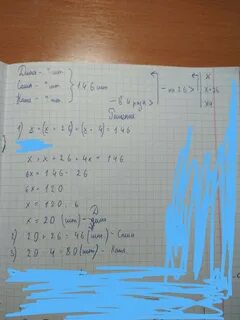 Дима – ? шт.
Саша – ? шт. } 146 шт
Коля – ? шт.
– на 26 >
– в 4 раза >
x
x+26
x4
1) x + (x + 26) + (x · 4) = 146
x + x + 26 + 4x = 146
6x = 146 - 26
6x = 120
x = 120 : 6
x = 20 (шт.) – Дима
2) 20 + 26 = 46 (шт.) – Саши
3) 20 · 4 = 80 (шт.) – Коли